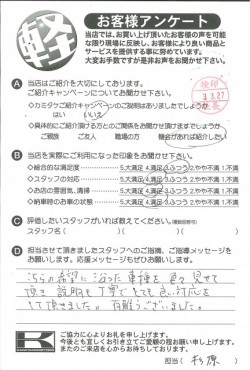 軽
お客様アンケート
当店では、お買い上げ頂いたお客様の声を可能
な限り現場に反映し、お客様により良い商品と
サービスを提供する事に努めています。
大変お手数ですが是非お声をお聞かせ下さい。
A 当店はご紹介を大切にしております。
ご紹介キャンペーンについてお聞かせ下さい。
検印
3.3.27
店長
◇カミタケご紹介キャンペーンのご説明はありましたでしょうか
はい いいえ
◇具体的にご紹介頂ける方とのご関係をお聞かせ頂けますでしょうか
ご親族 ご友人 職場の方 機会があれば紹介したい
B 当店を実際にご利用になった印象をお聞かせ下さい。
◇総合的な満足度 5.大満足 4.満足 3.ふつう 2.やや不満 1.不満
◇スタッフの対応 5.大満足 4.満足 3.ふつう 2.やや不満 1.不満
◇お店の雰囲気、清掃 5.大満足 4.満足 3.ふつう 2.やや不満 1.不満
◇納車時のお車の状態 5.大満足 4.満足 3.ふつう 2.やや不満 1.不満
C 評価したいスタッフがいれば教えてください。(複数回答可)
スタッフ名( )( )
D 担当させて頂きましたスタッフへのご指摘、ご指導メッセージを
お願いします。応援メッセージもぜひお願いします。
こちらの希望に沿った車種を色々見せて
頂き説明も丁寧でとても良い対応を
して頂きました。有難うございました。
K
ご協力に心よりお礼を申し上げます。
今後とも宜しくお引き立てご愛顧の程お願い申し上げます。
またのご来店を心からお待ちしております。
担当( 杉原 )